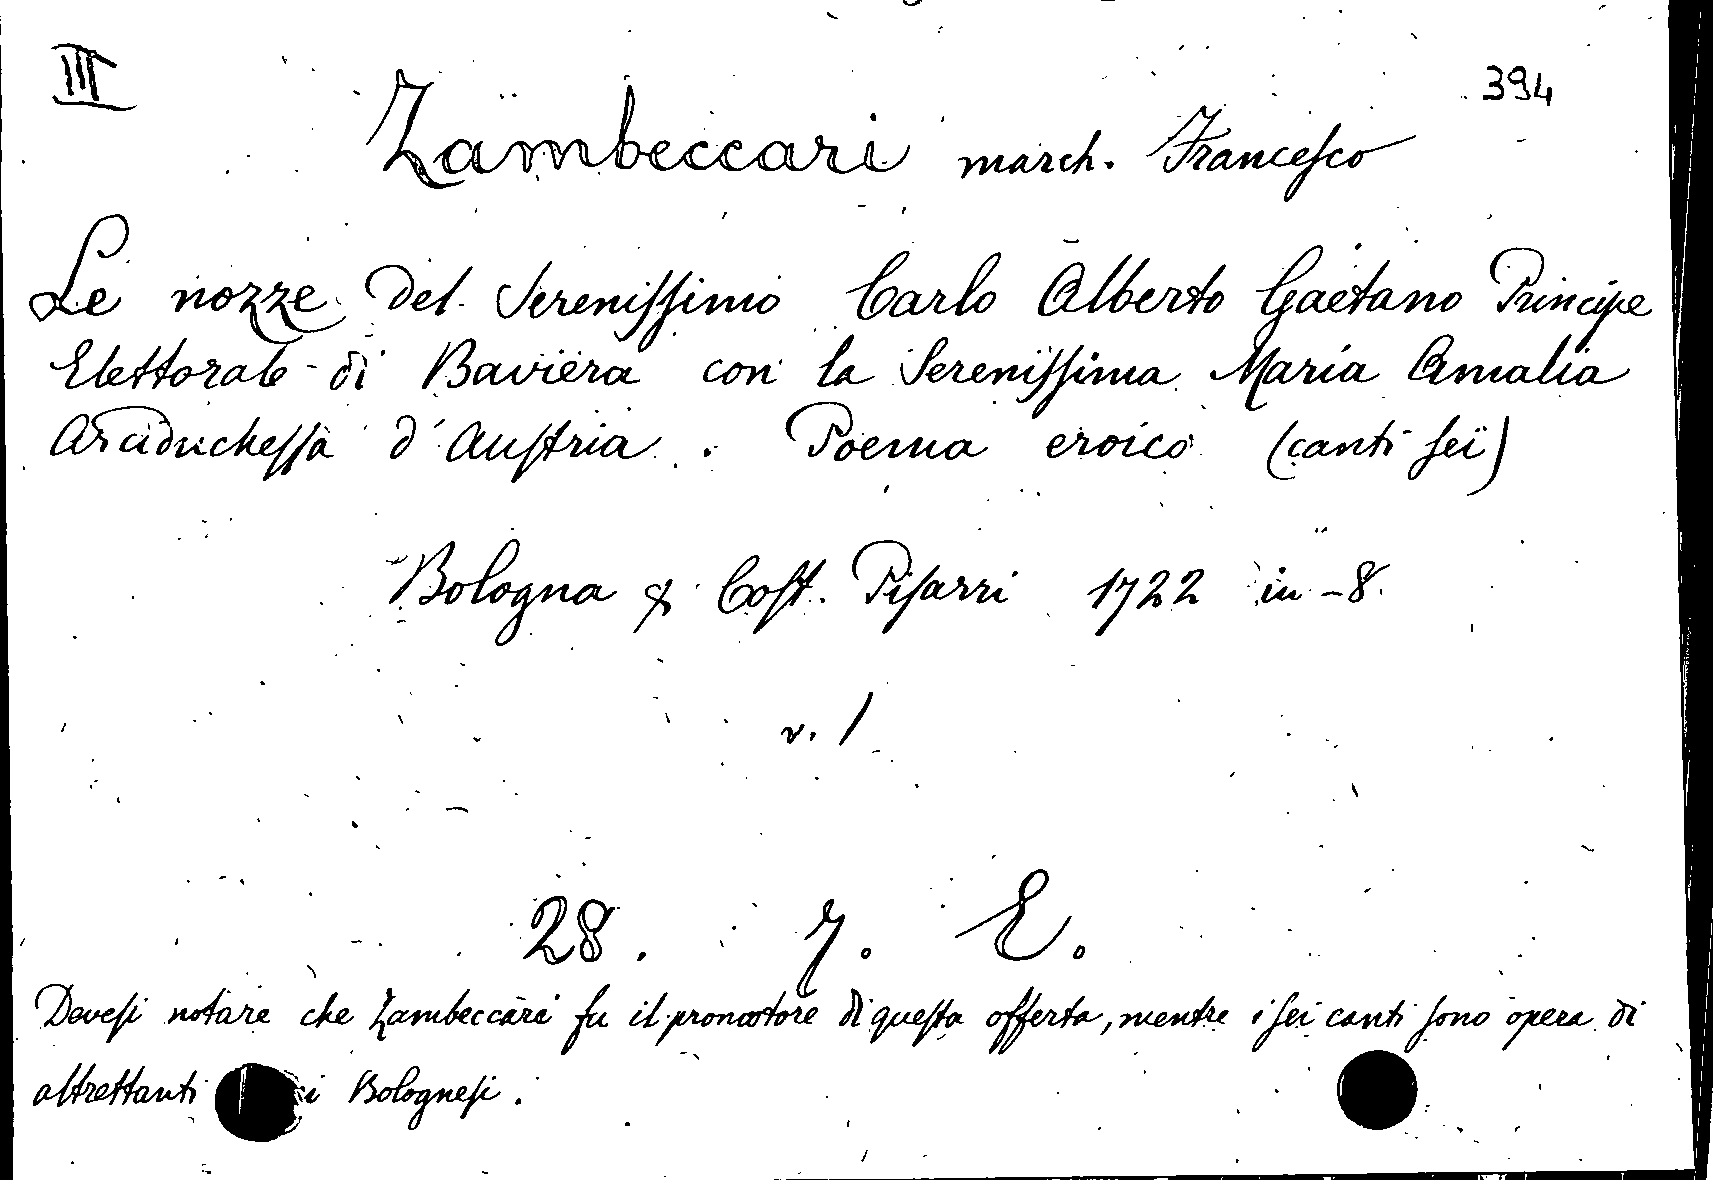 III
394
Zambeccari march. Francesco
Le nozze del Serenissimo Carlo Alberto Gaetano Principe
Elettorale di Baviera con la Serenissima Maria Amalia
Arciduchessa d'Austria. Poema eroico (canti sei)
Bologna Cost. Pisarri 1722 in-8.
v. 1
28. 7. E.
Devesi notare che Zambeccari fu il promotore di questa offerta, mentre i sei canti sono opera di
altrettanti Bolognesi.